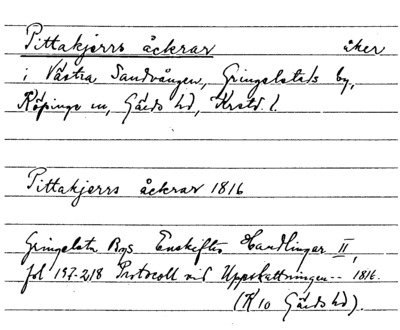 Pittakjerrs åckrar åker
i Västra Sandvången, Gringelstads by,
Köpinge sn, Gärds hd, Krstd. l.
Pittakjerrs åckrar 1816
Gringelsta Bys Enskiftes Handlingar II,
fol 197-218 Protocoll vid Uppskattningen -- 1816.
(R 10 Gärds hd).